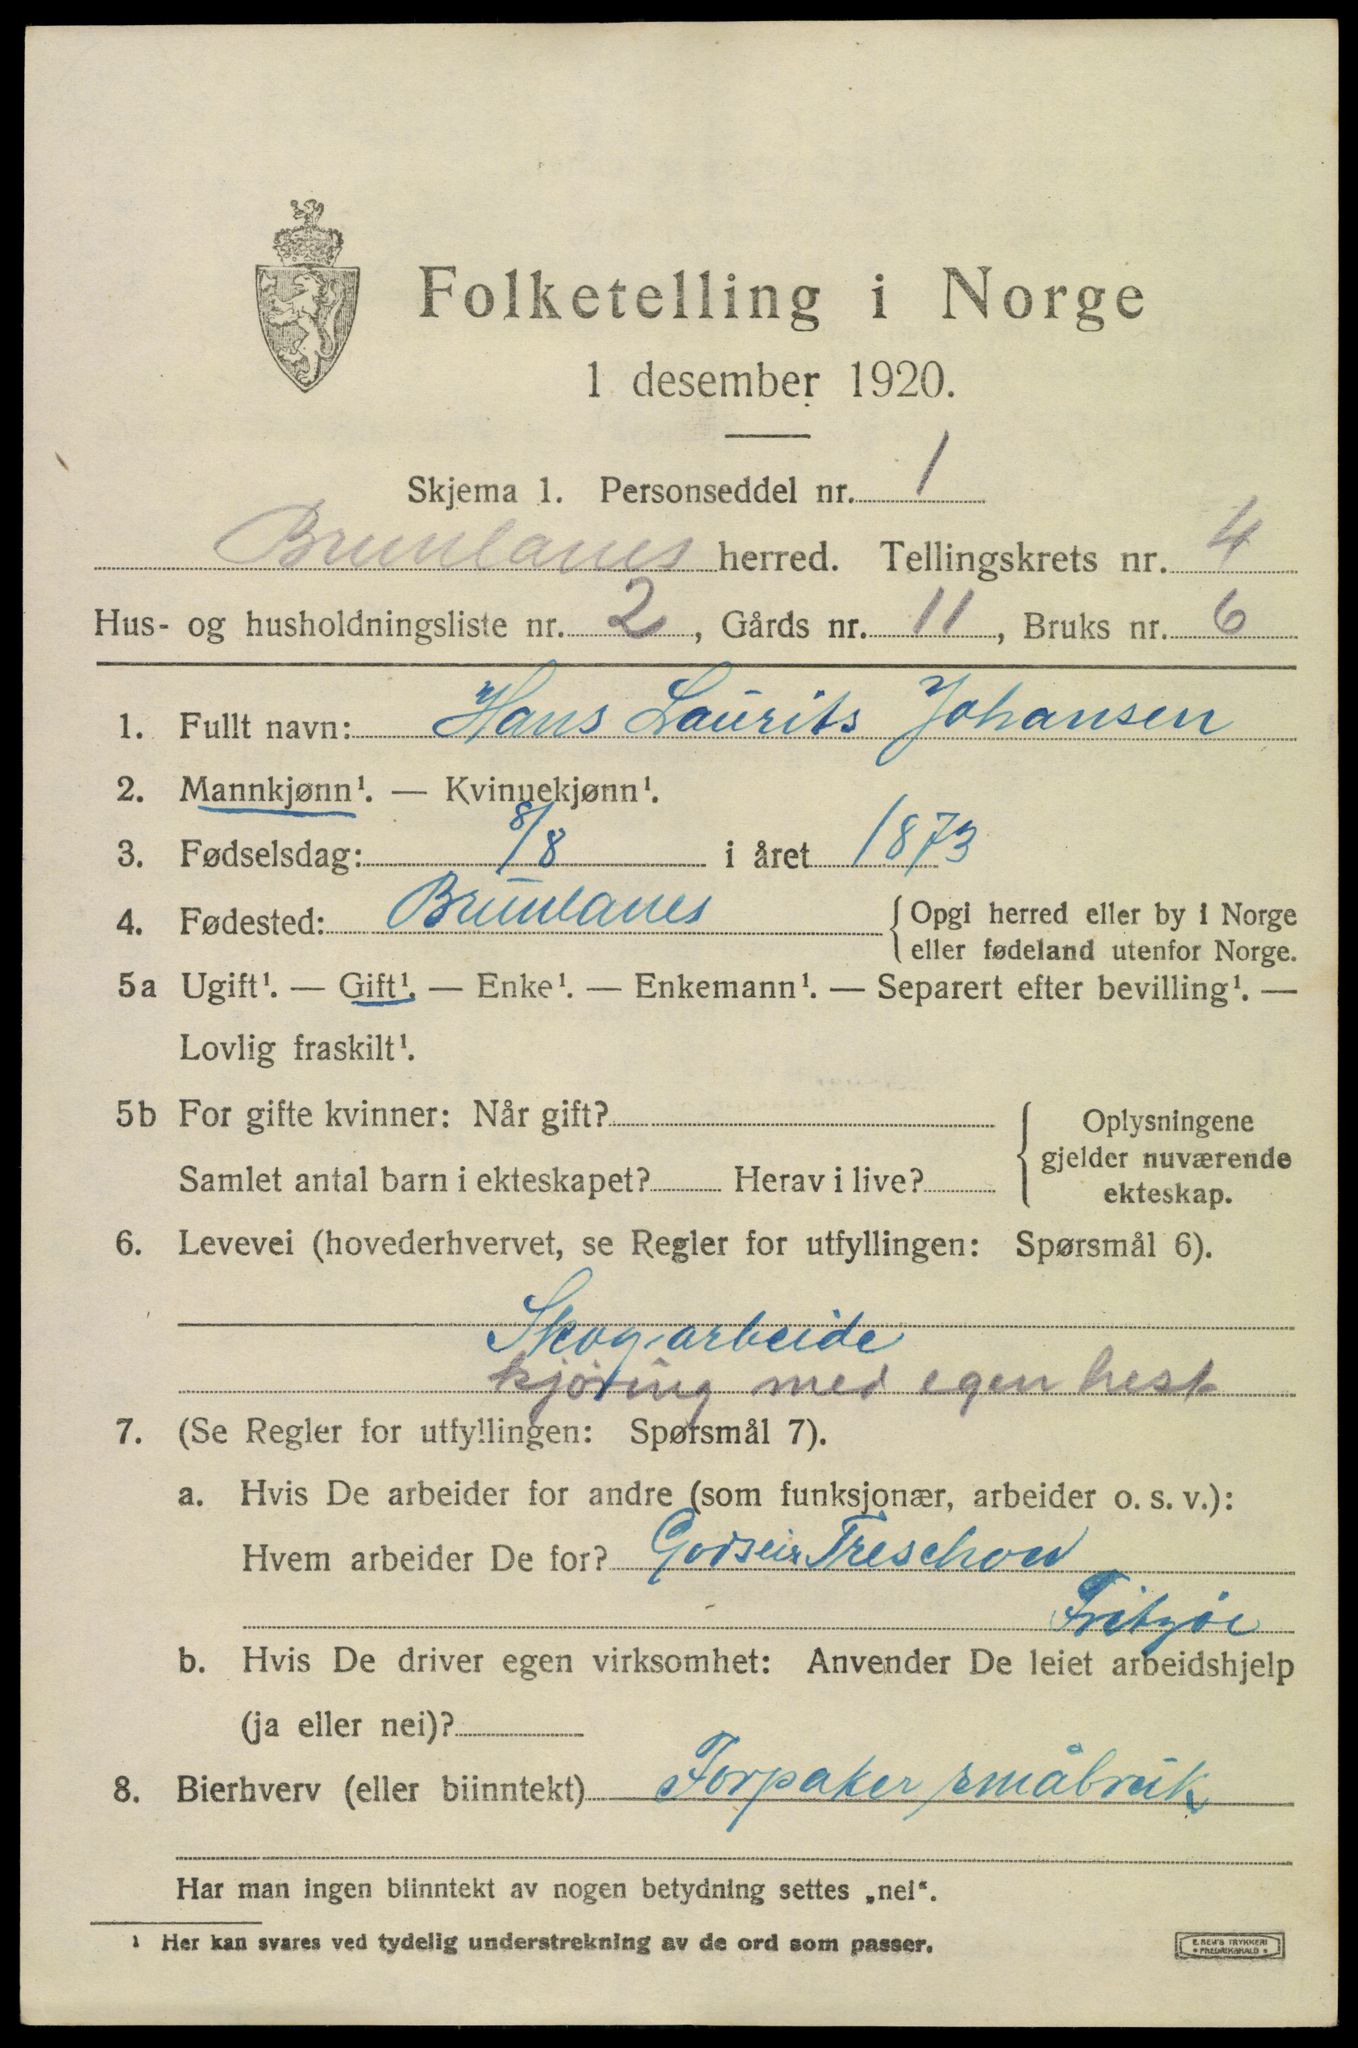 Folketelling i Norge
1 desember 1920.
Skjema 1. Personseddel nr. 1
Brunlanes herred. Tellingskrets nr. 4
Hus- og husholdningsliste nr. 2, Gårds nr. 11, Bruks nr. 6
1. Fullt navn: Hans Laurits Johansen
2. Mannkjønn¹. — Kvinnekjønn¹.
3. Fødselsdag: 8/8 i året 1873
4. Fødested: Brunlanes { Opgi herred eller by i Norge
eller fødeland utenfor Norge.
5a Ugift¹. — Gift¹. — Enke¹. — Enkemann¹. — Separert efter bevilling¹. —
Lovlig fraskilt¹.
5b For gifte kvinner: Når gift?
Samlet antal barn i ekteskapet? Herav i live?
{ Oplysningene
gjelder nuværende
ekteskap.
6. Levevei (hovederhvervet, se Regler for utfyllingen: Spørsmål 6).
Skogarbeide
kjøring med egen hest
7. (Se Regler for utfyllingen: Spørsmål 7).
a. Hvis De arbeider for andre (som funksjonær, arbeider o. s. v.):
Hvem arbeider De for? Godseier Treschow
Fritzøe
b. Hvis De driver egen virksomhet: Anvender De leiet arbeidshjelp
(ja eller nei)?
8. Bierhverv (eller biinntekt) Forpakter småbruk
Har man ingen biinntekt av nogen betydning settes „nei“.
¹ Her kan svares ved tydelig understrekning av de ord som passer.
E. SEM'S TRYKKERI
FREDRIKSHALD